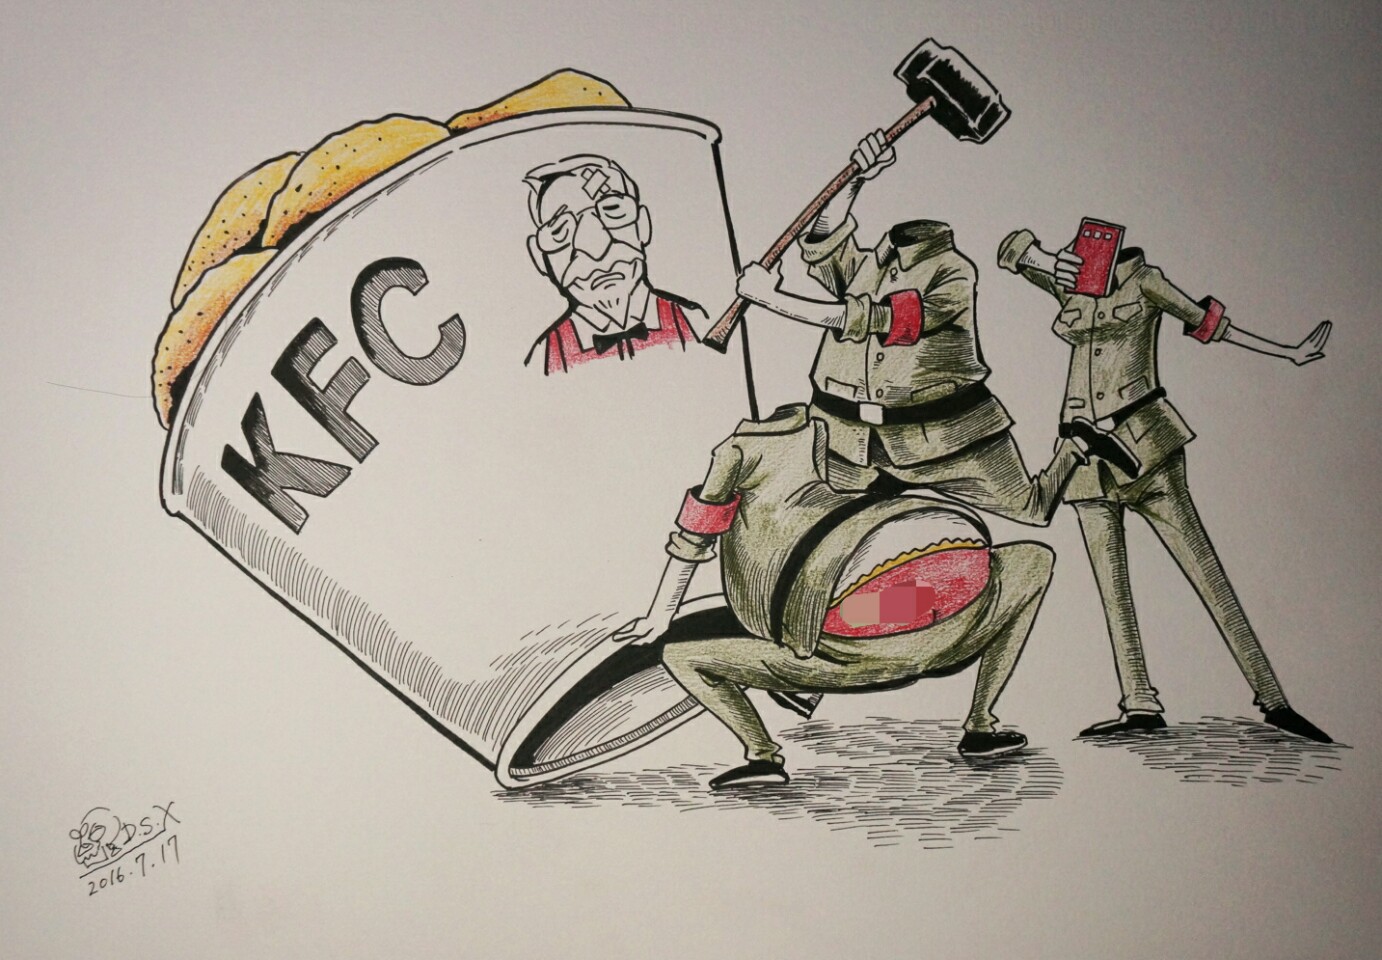 KFC
D.S.X
2016.7.17